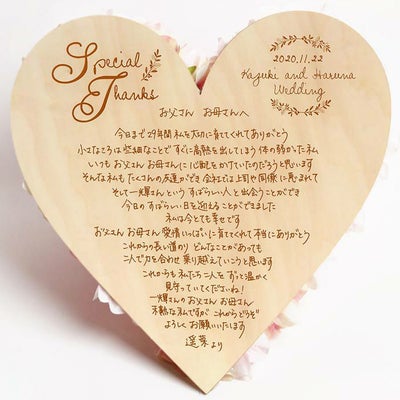 Special
Thanks
2020.11.22
Kazuki and Haruna
Wedding
お父さん お母さんへ
今日まで29年間 私を大切に育ててくれてありがとう
小さなころは些細なことで すぐに高熱を出してしまう 体の弱かった私
いつも お父さん お母さんに 心配をかけていたのだろうと思います
そんな私も たくさんの友達ができ 会社では上司や同僚に恵まれて
そして一輝さんという すばらしい人と出会うことができ
今日の すばらしい日を迎えることができました
私は今とても幸せです
お父さん お母さん 愛情いっぱいに育ててくれて 本当にありがとう
これからの長い道のり どんなことがあっても
二人で力を合わせ 乗り越えていこうと思います
これからも 私たち二人を ずっと温かく
見守っていてくださいね!
一輝さんのお父さん お母さん
未熟な私ですが これからどうぞ
よろしく お願いいたします
遥菜より